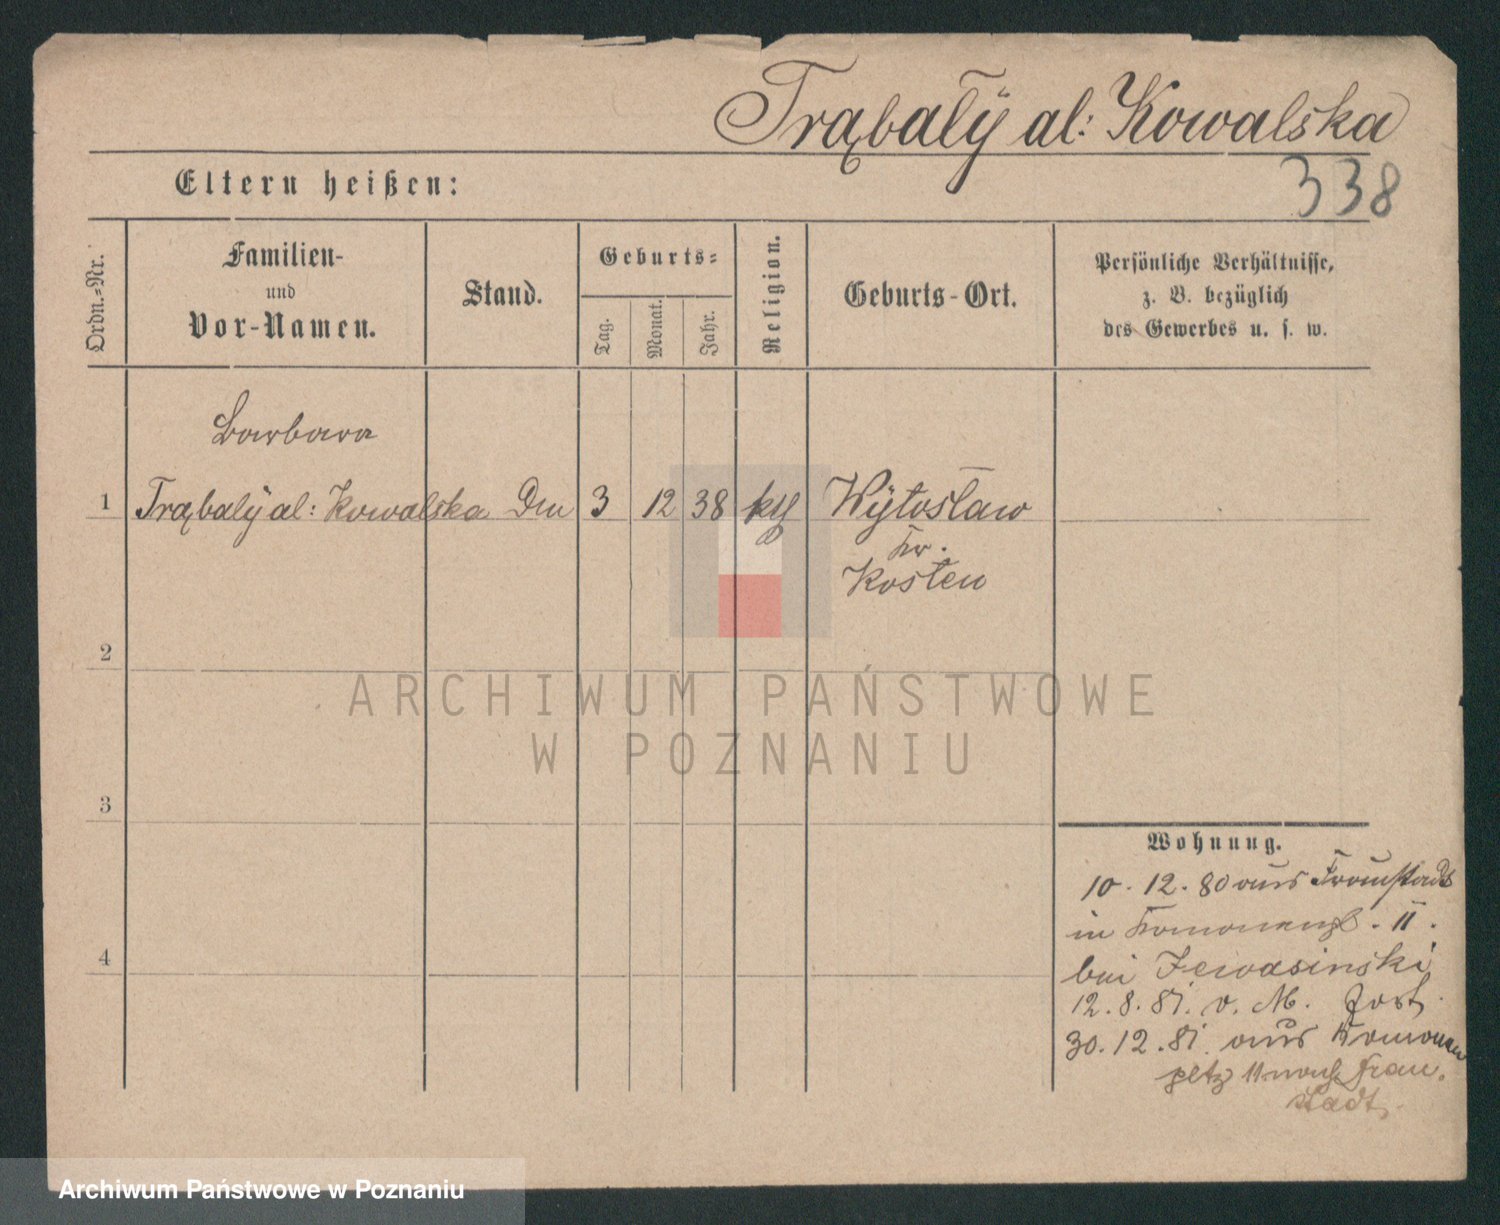 Trąbały al: Kowalska
338
Eltern heißen:
Ordn.-Nr.
Familien-
und
Vor-Namen.
Stand.
Geburts-
Tag.
Monat.
Jahr.
Religion.
Geburts-Ort.
Persönliche Verhältnisse,
z. B. bezüglich
des Gewerbes u. s. w.
Barbara
1 Trąbały al: Kowalska 3 12 38 kth Wÿtoslaw
Kr.
Kosten
2
3
4
ARCHIWUM PAŃSTWOWE
W POZNANIU
Wohnung.
10. 12. 80 aus Fraustadt
in 11.
bei
12. 8. 81. v. M. fort.
30. 12. 81. aus
pltz 11 nach Frau-
stadt.
Archiwum Państwowe w Poznaniu